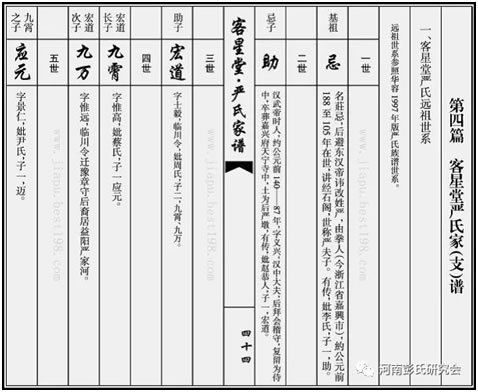 第四篇 客星堂严氏家(支)谱
一、客星堂严氏远祖世系
远祖世系参照华容1997年版严氏族谱世系。
一世
基祖
忌
名莊忌,后避东汉帝讳改姓严,由拳人(今浙江省嘉興市),約公元前
188至105年在世,讲经石阁,世称严夫子。有传,妣李氏;子一,助。
二世
忌子
助
汉武帝时人,约公元前140——87年,字义兴,汉中大夫,后拜会稽守,复留为侍
中,卒葬嘉兴府天宁寺中,土为后严墩,有传,妣赵恭人;子一,宏道。
客星堂·严氏家谱
四十四
三世
助子
宏道
字士毅,临川令,妣周氏;子二,九霄、九万。
四世
宏道
长子
九霄
字惟高,妣蔡氏;子一应元。
宏道
次子
九万
字惟远,临川令迁豫章守后裔居益阳严家河。
五世
九霄
之子
应元
字景仁,妣尹氏;子一,迈。
www.jiapu.best198.com
www.jiapu.best198.com
河南彭氏研究会